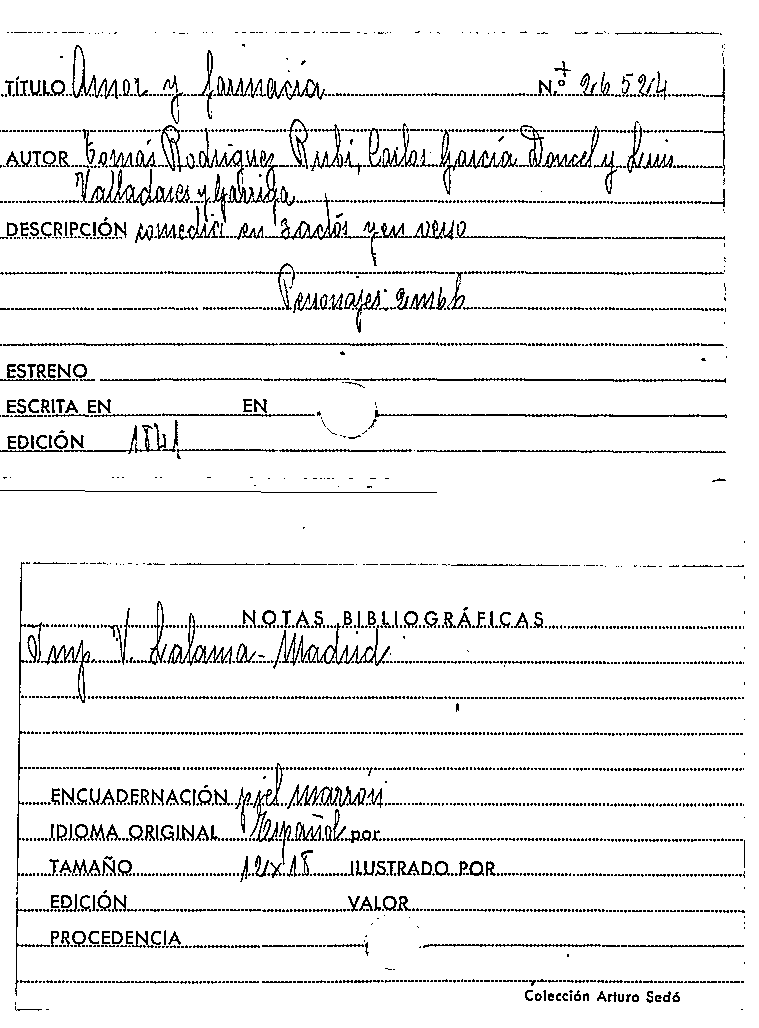 TÍTULO Amor y farmacia N.º 26524
AUTOR Tomás Rodríguez Rubí, Carlos García Doncel y Luis
Valladares y Garriga
DESCRIPCIÓN comedia en 3 actos y en verso
Personajes: 2m 6h
ESTRENO
ESCRITA EN EN
EDICIÓN 1841
NOTAS BIBLIOGRÁFICAS
Imp. V. Lalama - Madrid
ENCUADERNACIÓN piel marrón
IDIOMA ORIGINAL Español por
TAMAÑO 12x18 ILUSTRADO POR
EDICIÓN VALOR
PROCEDENCIA
Colección Arturo Sedó